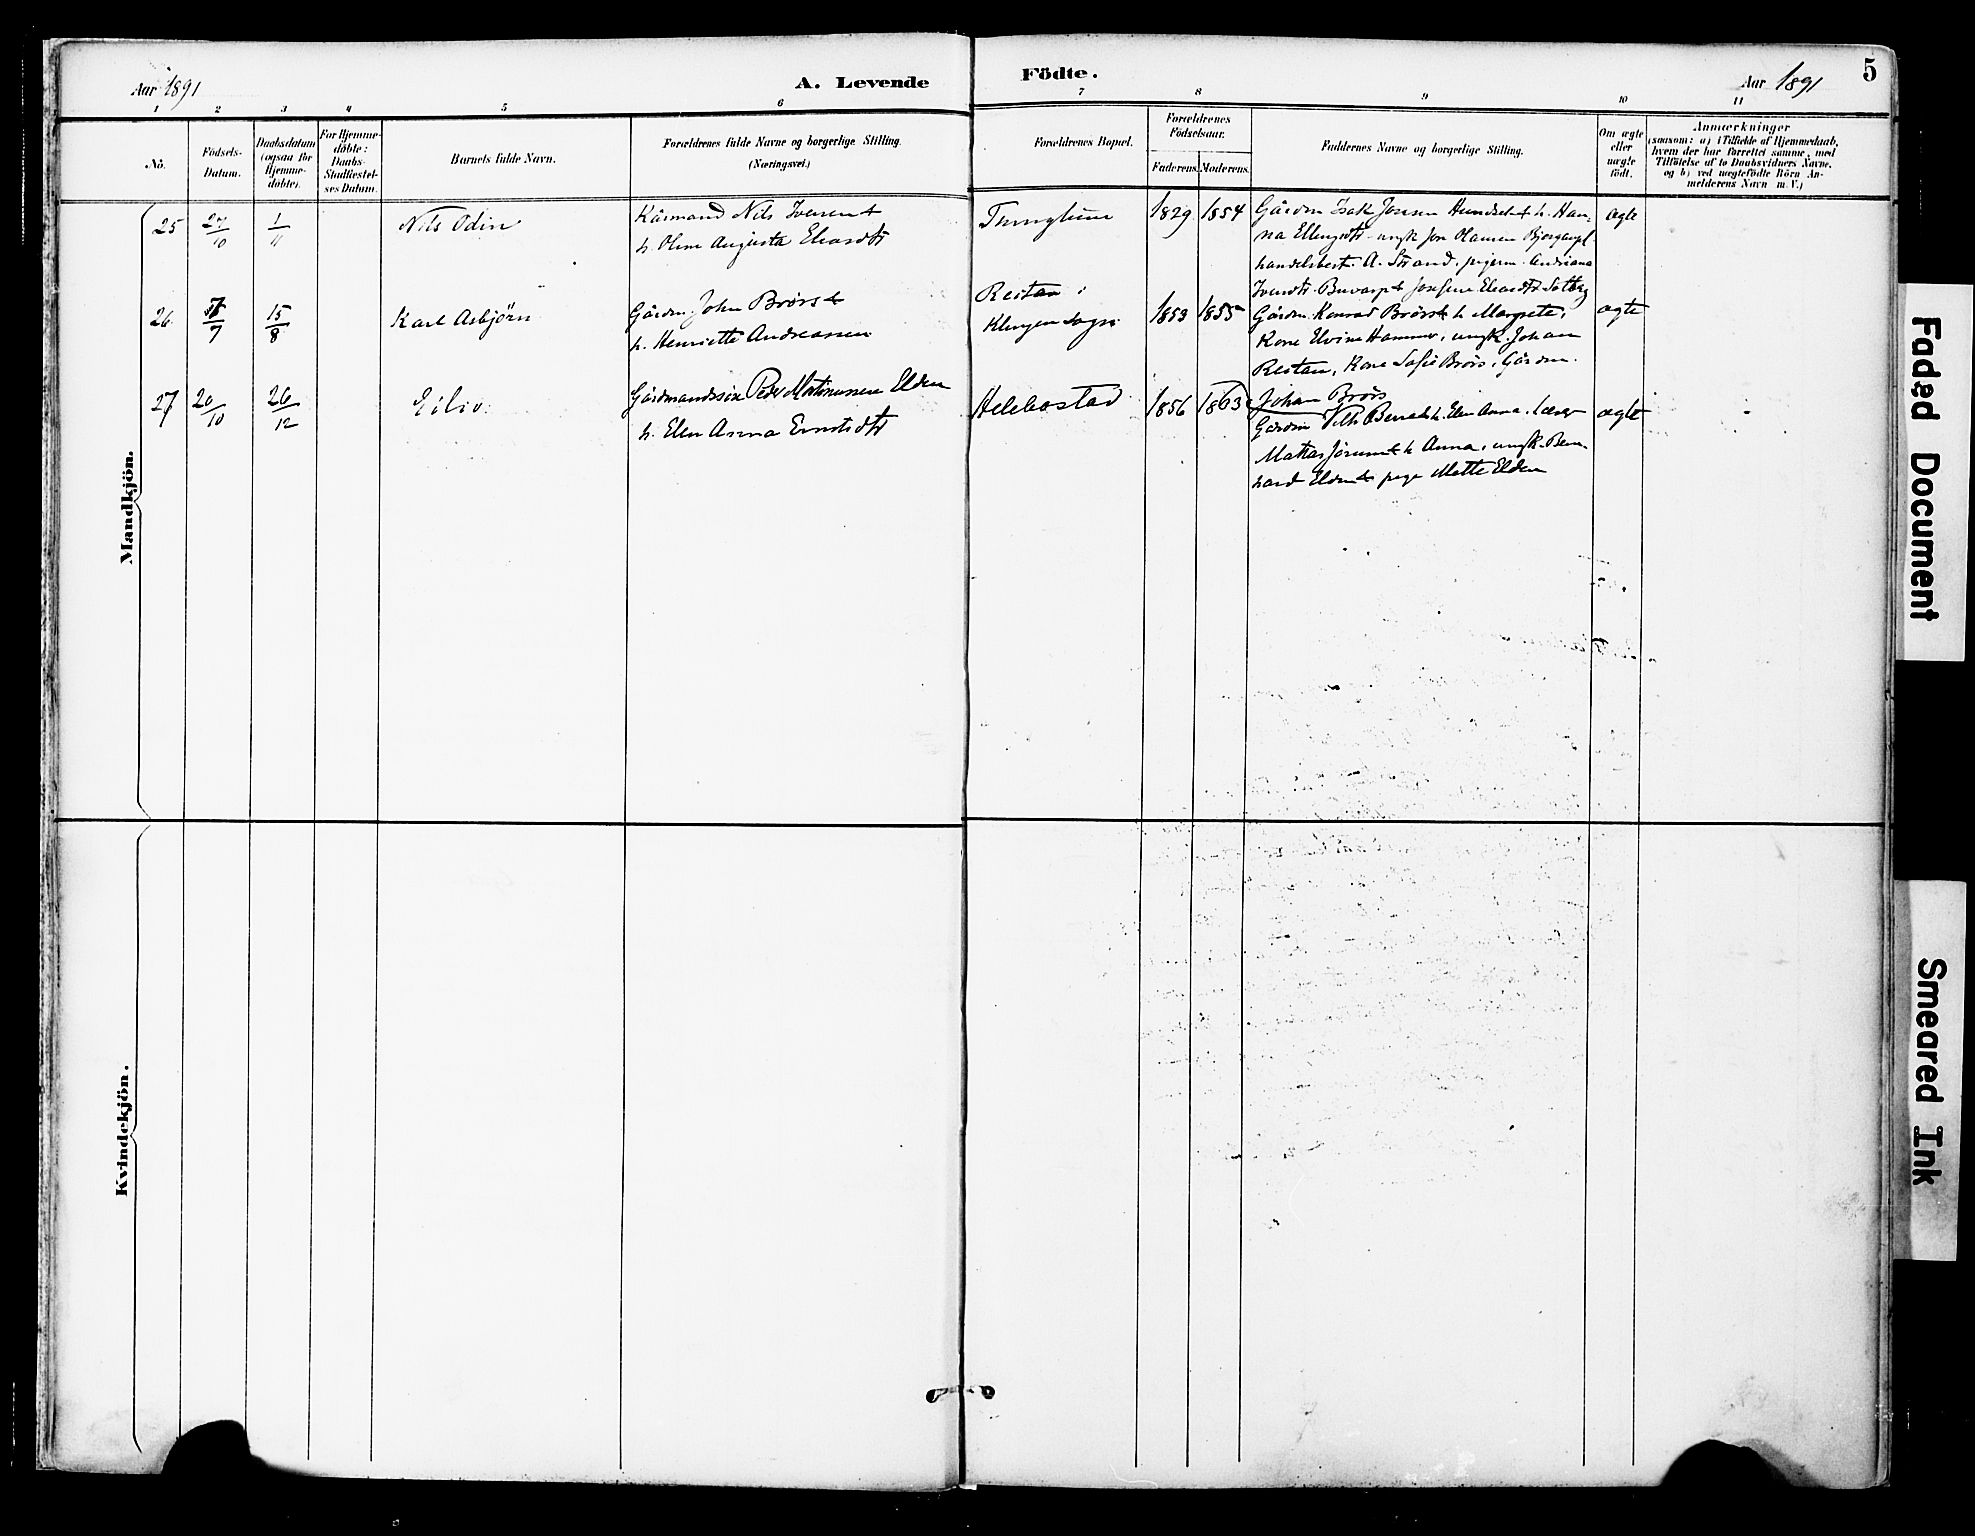 Aar 1891
A. Levende
Födte.
Aar 1891
5
1 2 3 4 5 6 7 8 9 10 11
No.
Födsels-
Datum.
Daabsdatum
(ogsaa for
Hjemme-
döbte).
For Hjemme-
döbte:
Daabs-
Stadfæstel-
ses Datum.
Barnets fulde Navn.
Forældrenes fulde Navne og borgerlige Stilling.
(Næringsvei.)
Forældrenes Bopæl.
Forældrenes
Födselsaar.
Faderens. Moderens.
Faddernes Navne og borgerlige Stilling.
Om ægte
eller
uægte
födt.
Anmærkninger
(saasom: a) i Tilfælde af Hjemmedaab,
hvem der har forrettet samme, med
Tilföielse af to Daabsvidners Navne,
og b) ved uægtefödte Börn An-
melderens Navn m. V.)
Mandkjön.
25 27/10 1/11 Nils Odin
Kårmand Nils Iversen &
h. Oline Augusta
1829 1854
Gårdm Isak Jonsen & h. Han-
na ungk Jon Hansen
handelsbest. A. Strand, Andriana
ægte
26 7/7 15/8 Karl Asbjörn
Gårdm. John Brörs &
h. Henriette Andreassen
Restan i
Klingen sogn
1853 1855
Gårdm. Konrad Brörs & h. Margrete,
Kone Elvine Hammer, ungk. Johan
Restan, Kone Sofie Brörs, Gårdm.
Johan Brörs
ægte
27 20/10 26/12 Eiliv
Gårdmandssön Peder Martinussen Elden
h. Elen Anna
1856 1863
Gårdm h. Elen Anna,
& h. Anna, ungk. Bern-
hard Elden & pige Mette Elden
ægte
Kvindekjön.
Faded Document
Smeared Ink